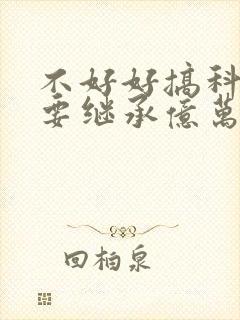 不好好搞科
要继承億萬
回柏泉